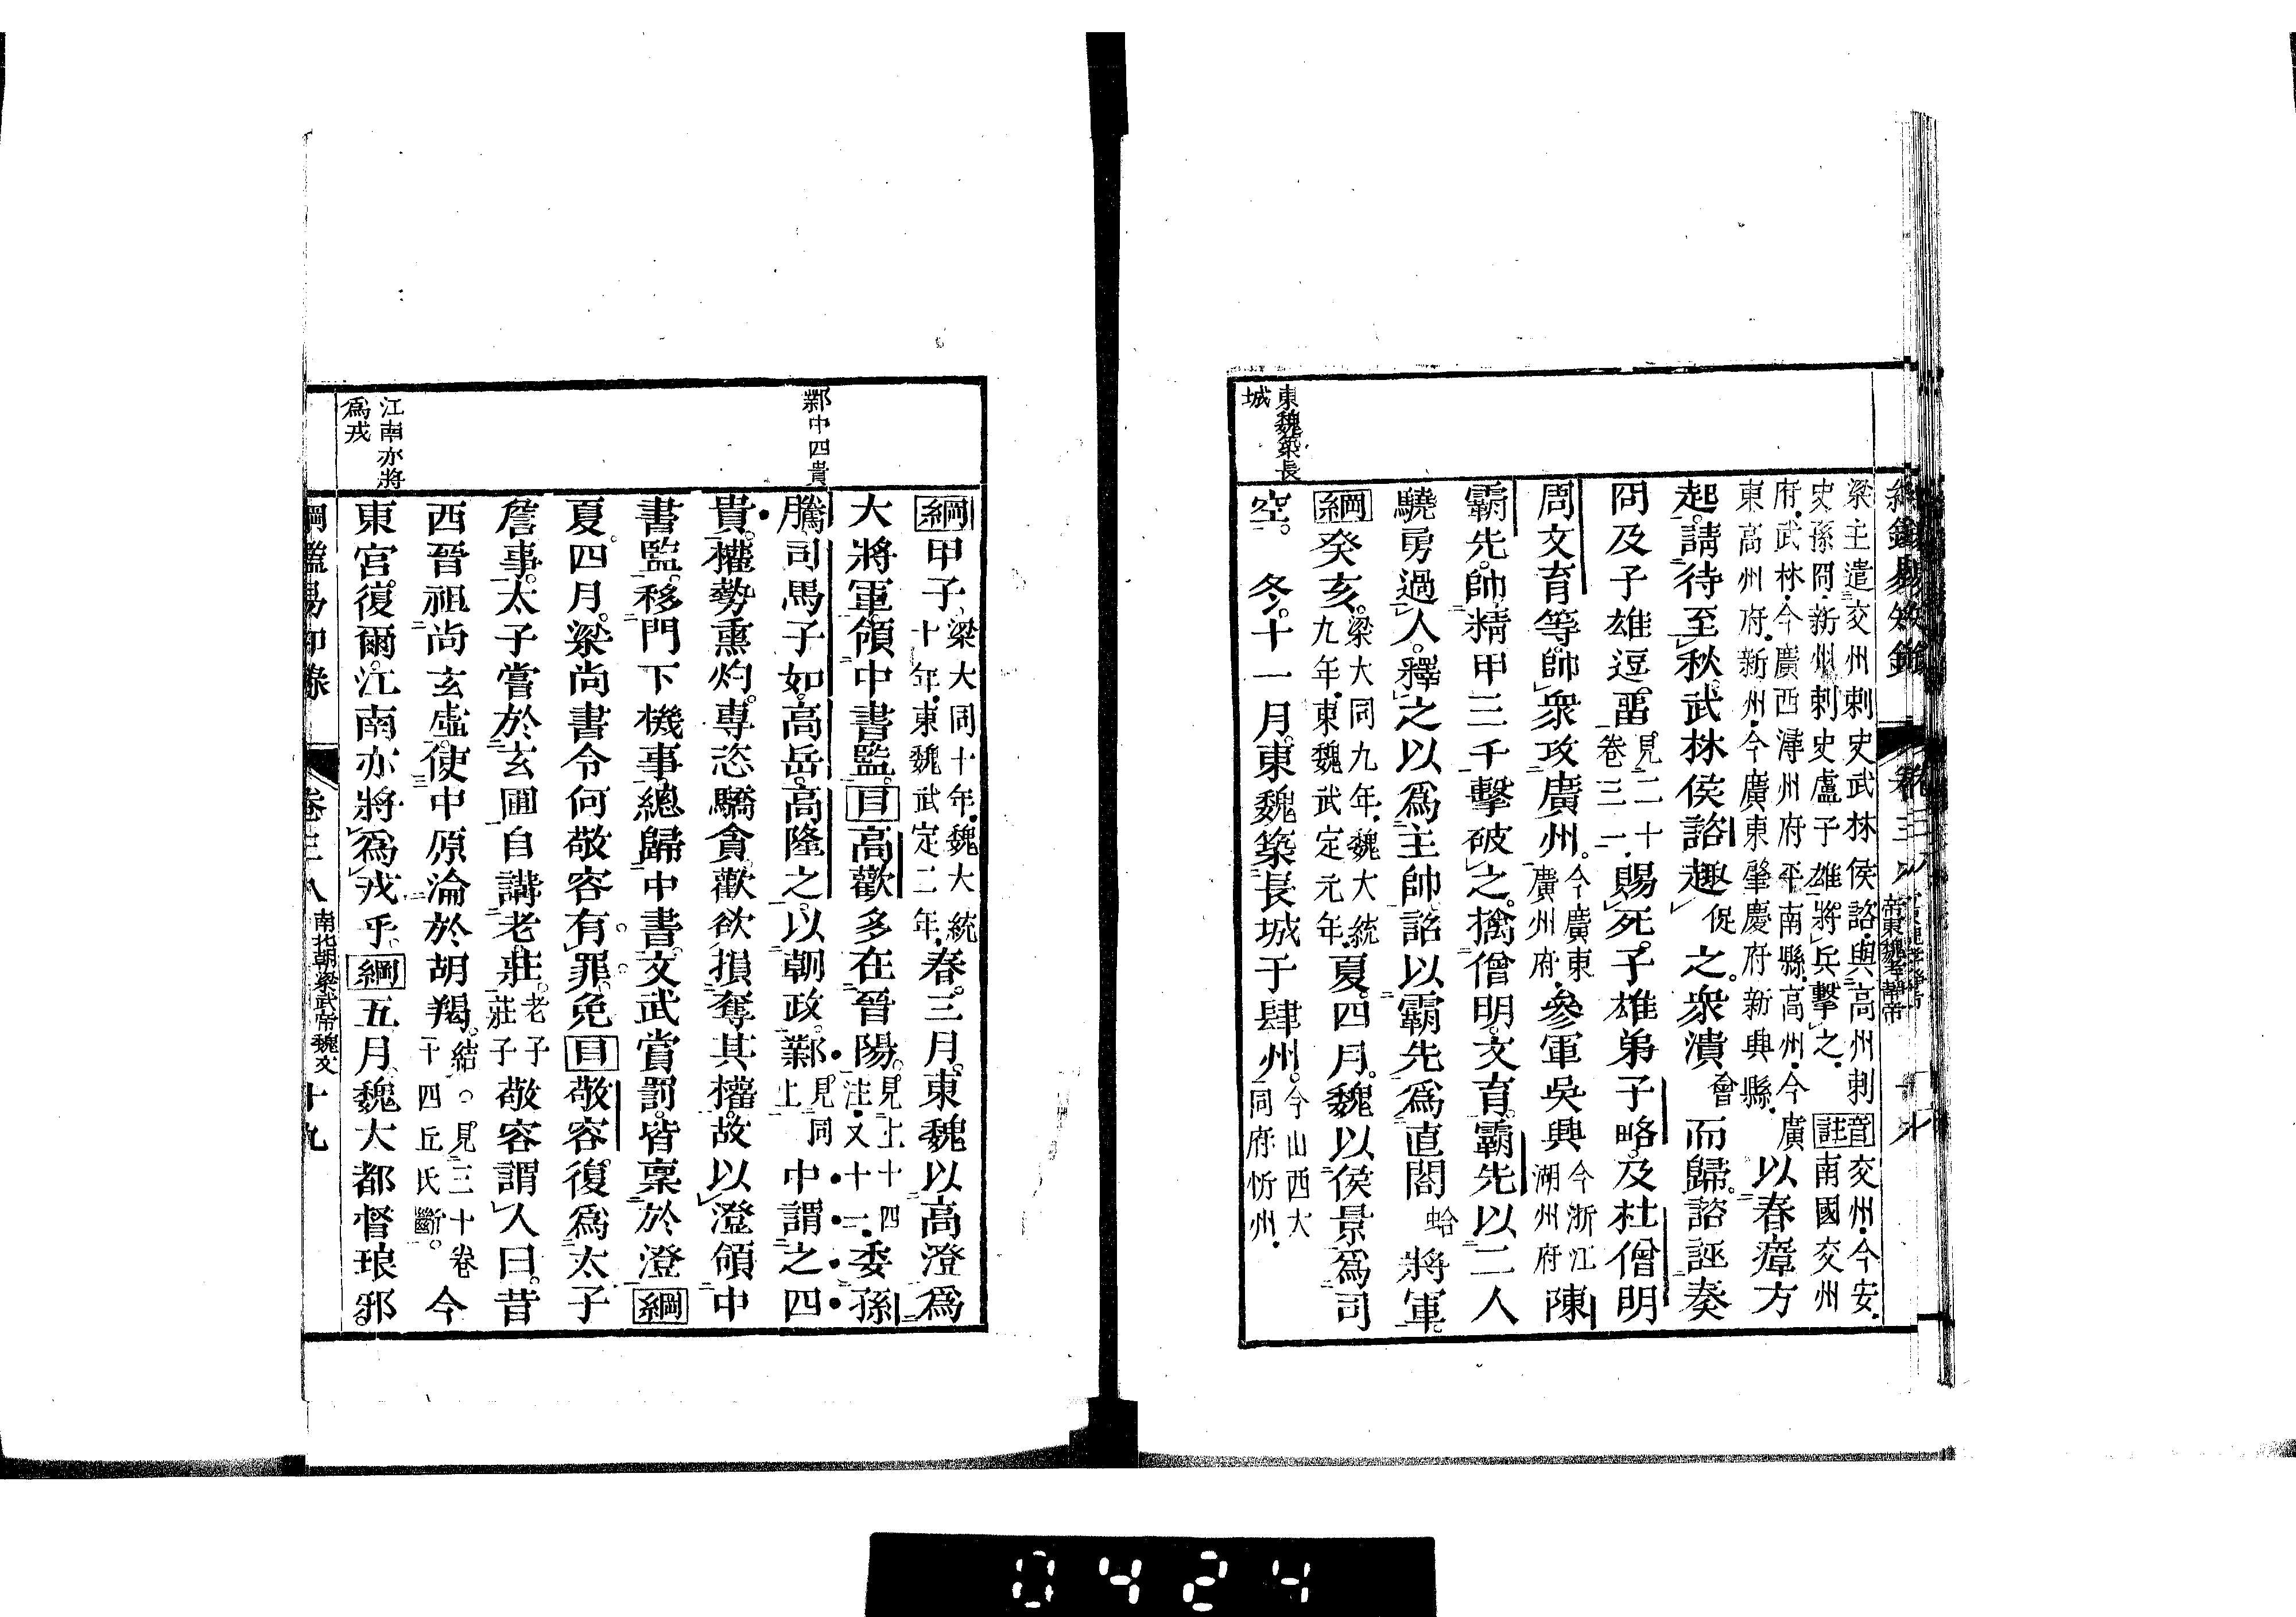 東魏築長
城
梁主遣交州刺史武林侯諮與高州刺
史孫冏新州刺史盧子雄將兵擊之
音註交州今安南國交州
府武林今廣西潯州府平南縣高州今廣
東高州府新州今廣東肇慶府新興縣
以春瘴方
起。請待至秋。武林侯諮趣促之。衆潰會而歸。諮誣奏
冏及子雄逗畱見二十卷三一賜死。子雄弟子略及杜僧明
周文育等。帥衆攻廣州。今廣東廣州府參軍吳興今浙江湖州府陳
霸先。帥精甲三千擊破之。擒僧明。文育。霸先以二人
驍勇過人。釋之以爲主帥。詔以霸先爲直閤蛤將軍。
綱癸亥。梁大同九年魏大統九年東魏武定元年夏。四月。魏以侯景爲司
空。 冬。十一月。東魏築長城于肆州。今山西大同府忻州
鄴中四貴
江南亦將
爲戎
綱甲子梁大同十年魏大統十年東魏武定二年春。三月。東魏以高澄爲
大將軍。領中書監。目高歡多在晉陽。見上十四注又十一委孫
騰。司馬子如。高岳。高隆之。以朝政。鄴見同上中謂之四
貴。權勢熏灼。專恣驕貪。歡欲損奪其權。故以澄領中
書監。移門下機事。總歸中書。文武賞罰。皆稟於澄綱
夏。四月。梁尚書令何敬容有罪。免目敬容復爲太子
詹事。太子嘗於玄圃自講老莊。老子莊子敬容謂人曰。昔
西晉祖尚玄虛。使中原淪於胡羯。結○見三十卷十四丘氏斷今
東宮復爾。江南亦將爲戎乎。綱五月魏大都督琅邪
南北朝梁武帝魏文
十九
0424